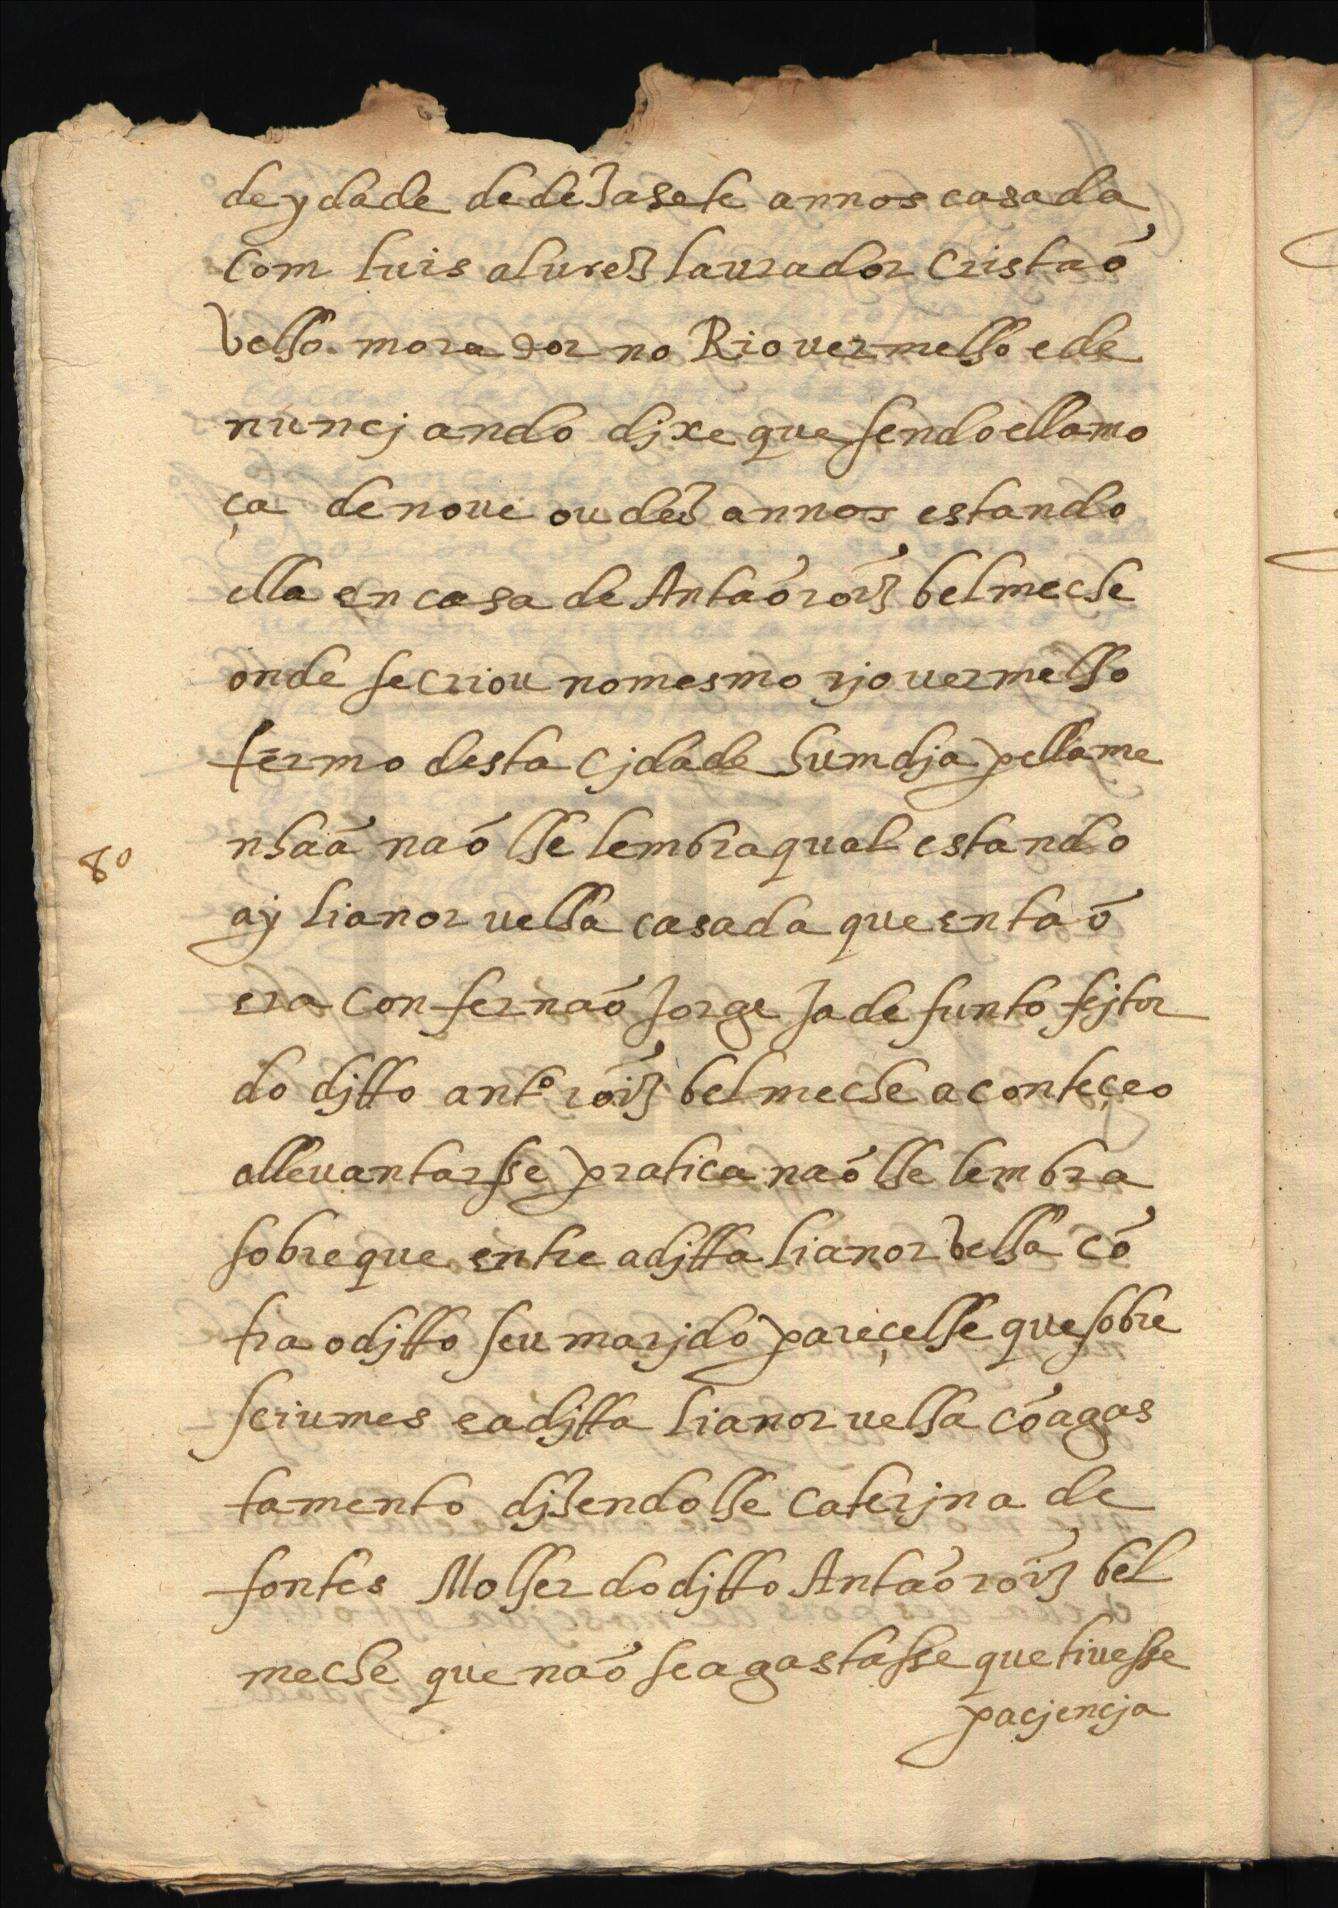 de ydade de dezasete annos casada
com luis alurez laurador cristaõ
velho morador no Rio vermelho e de
nuncjando djxe que sendo ella mo
ça de noue ou dez annos estando
ella en casa de Antaõ roĩz belmeche
onde se criou no mesmo rjo vermelho
termo desta cjdade hum dja pella me
nhaã naõ lhe lembra qual estando
8º
aÿ lianor velha casada que entaõ
era con fernaõ Jorge Ja defunto fejtor
do djtto antº roĩz belmeche aconteçeo
alleuantarsse pratica naõ lhe lembra
sobre que entre a djtta lianor velha cõ
tra o djtto seu marjdo pareçelhe que sobre
seiumes e a djtta lianor velha cõ agas
tamento djzendolhe caterjna de
fontes Molher do djtto Antaõ roĩz bel
meche que naõ se agastasse que tiuesse
pacjencja